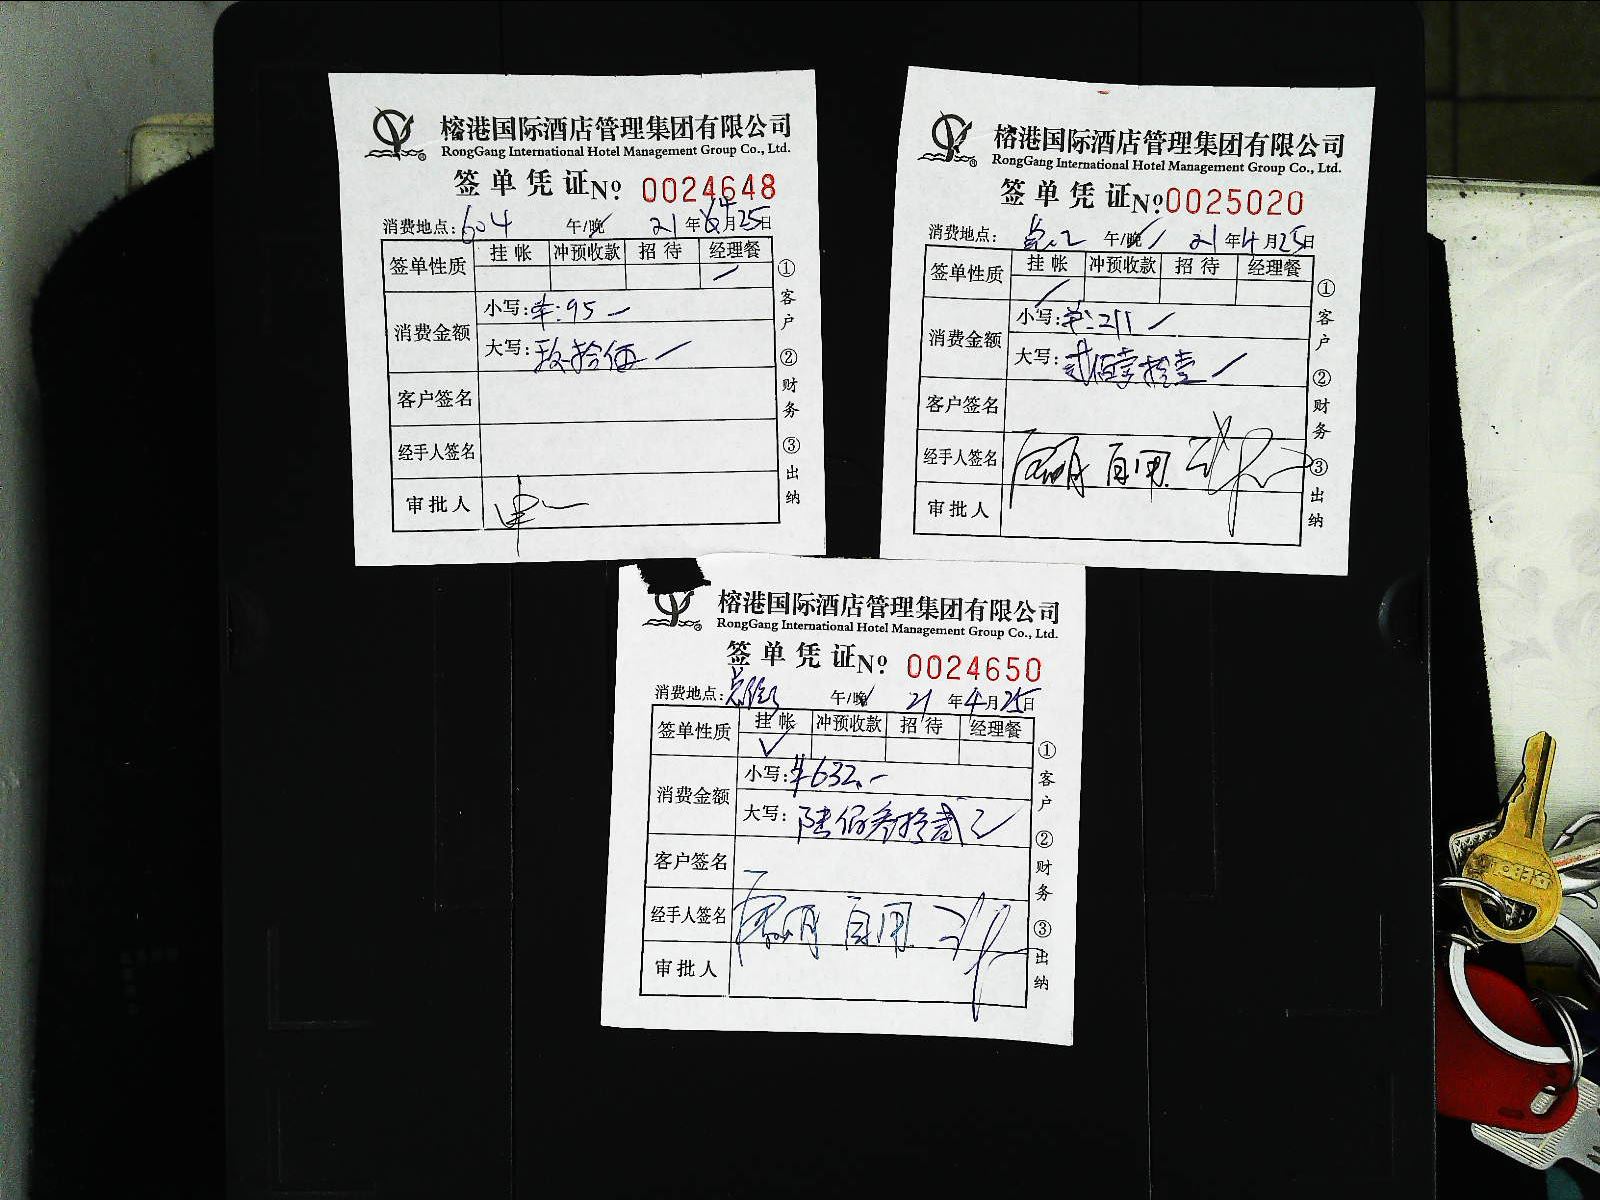 榕港国际酒店管理集团有限公司
RongGang International Hotel Management Group Co., Ltd.
签单凭证 No 0024648
消费地点: 604 午/晚 21年4月25日
签单性质 挂帐 冲预收款 招待 经理餐
消费金额 小写: ¥:95
大写: 玖拾伍
客户签名
经手人签名
审批人
①客户 ②财务 ③出纳
榕港国际酒店管理集团有限公司
RongGang International Hotel Management Group Co., Ltd.
签单凭证 No 0025020
消费地点: 午/晚 21年4月25日
签单性质 挂帐 冲预收款 招待 经理餐
消费金额 小写: ¥:211
大写: 贰佰壹拾壹
客户签名
经手人签名 自用
审批人
①客户 ②财务 ③出纳
榕港国际酒店管理集团有限公司
RongGang International Hotel Management Group Co., Ltd.
签单凭证 No 0024650
消费地点: 午/晚 21年4月25日
签单性质 挂帐 冲预收款 招待 经理餐
消费金额 小写: ¥632.-
大写: 陆佰叁拾贰元
客户签名
经手人签名 自用
审批人
①客户 ②财务 ③出纳